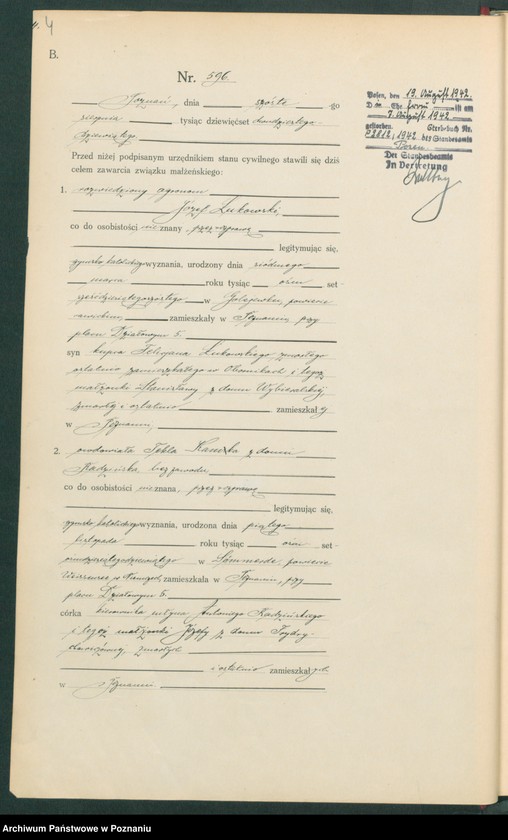 4
B.
Nr. 596.
Poznań, dnia szóste -go
sierpnia tysiąc dziewięćset dwudziestego
dziewiątego.
Przed niżej podpisanym urzędnikiem stanu cywilnego stawili się dziś
celem zawarcia związku małżeńskiego:
1. rozwiedziony agronom
Józef Lukowski,
co do osobistości nie znany, przez rozprawę
legitymując się,
rzymsko katolickiego wyznania, urodzony dnia siódmego
marca roku tysiąc ośm set-
sześćdziesiątego szóstego w powiecie
zamieszkały w Poznaniu, przy
placu Działowym 5.
syn kupca Felicjana Lukowskiego zmarłego
ostatnio zamieszkałego w Obornikach i tegoż
małżonki Stanisławy z domu
zmarłej i ostatnio zamieszkałej
w Poznaniu,
2. owdowiała Tekla z domu
Radzińska bez zawodu
co do osobistości nieznana, przez rozprawę
legitymując się,
rzymsko katolickiego wyznania, urodzona dnia piątego
listopada roku tysiąc ośm set-
w Sömmerda, powiecie
Weissensee w Niemczech, zamieszkała w Poznaniu, przy
placu Działowym 5.
córka kierownika młyna Antoniego Radzińskiego
i tegoż małżonki Józefy z domu
zmarłych
i ostatnio zamieszkałych
w Poznaniu
Posen, den 13. August 1942.
D Ehe ist am
7. August 1942
gestorben. Sterbebuch Nr.
P 2812/1942 des Standesamts
Posen
Der Standesbeamte
In Vertretung
Archiwum Państwowe w Poznaniu
www.szukajwarchiwach.pl